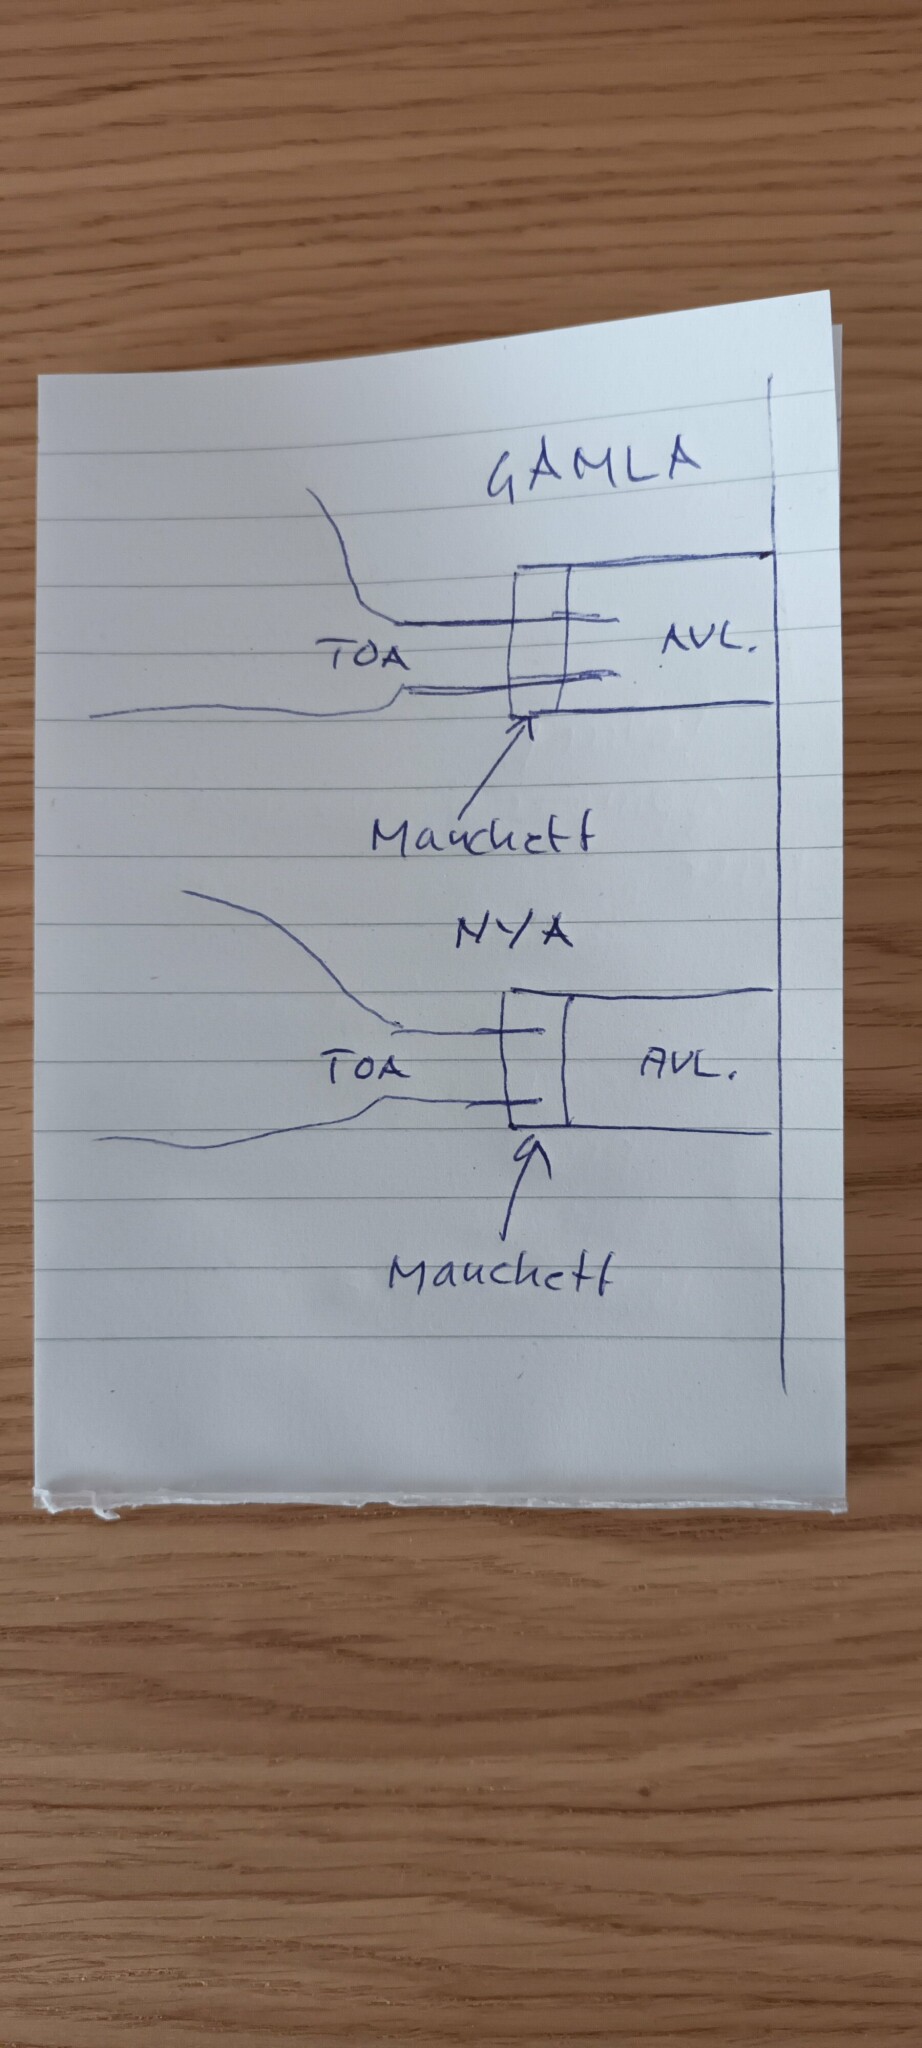 GAMLA
TOA
AVL.
Manchett
NYA
TOA
AVL.
Manchett